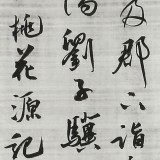 及郡下詣
陽劉子驥
桃花源記